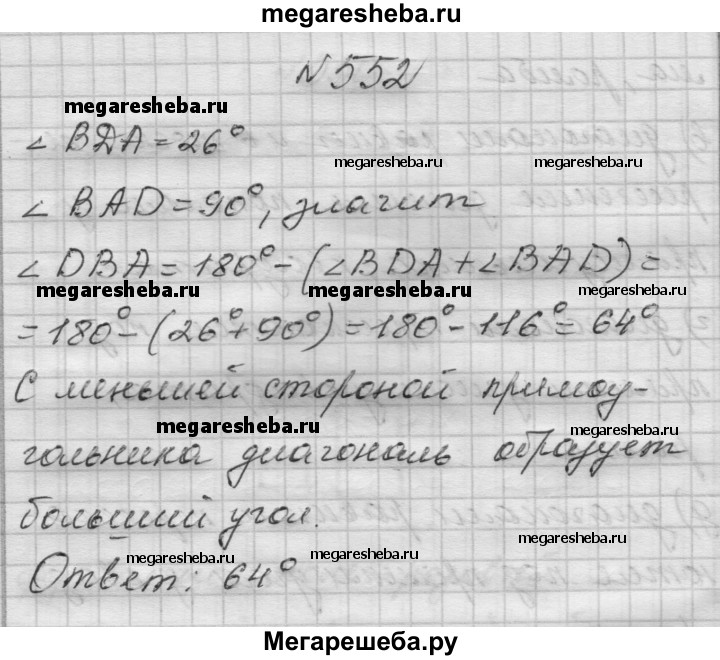 megaresheba.ru
№552
megaresheba.ru
∠ BDA = 26°
megaresheba.ru megaresheba.ru
∠ BAD = 90°, значит
∠ DBA = 180° - (∠BDA + ∠BAD) =
megaresheba.ru megaresheba.ru megaresheba.ru
= 180° - (26° + 90°) = 180° - 116° = 64°
С меньшей стороной прямоу-
megaresheba.ru megaresheba.ru
гольника диагональ образует
больший угол.
megaresheba.ru megaresheba.ru megaresheba.ru
Ответ: 64°
Мегарешеба.ру